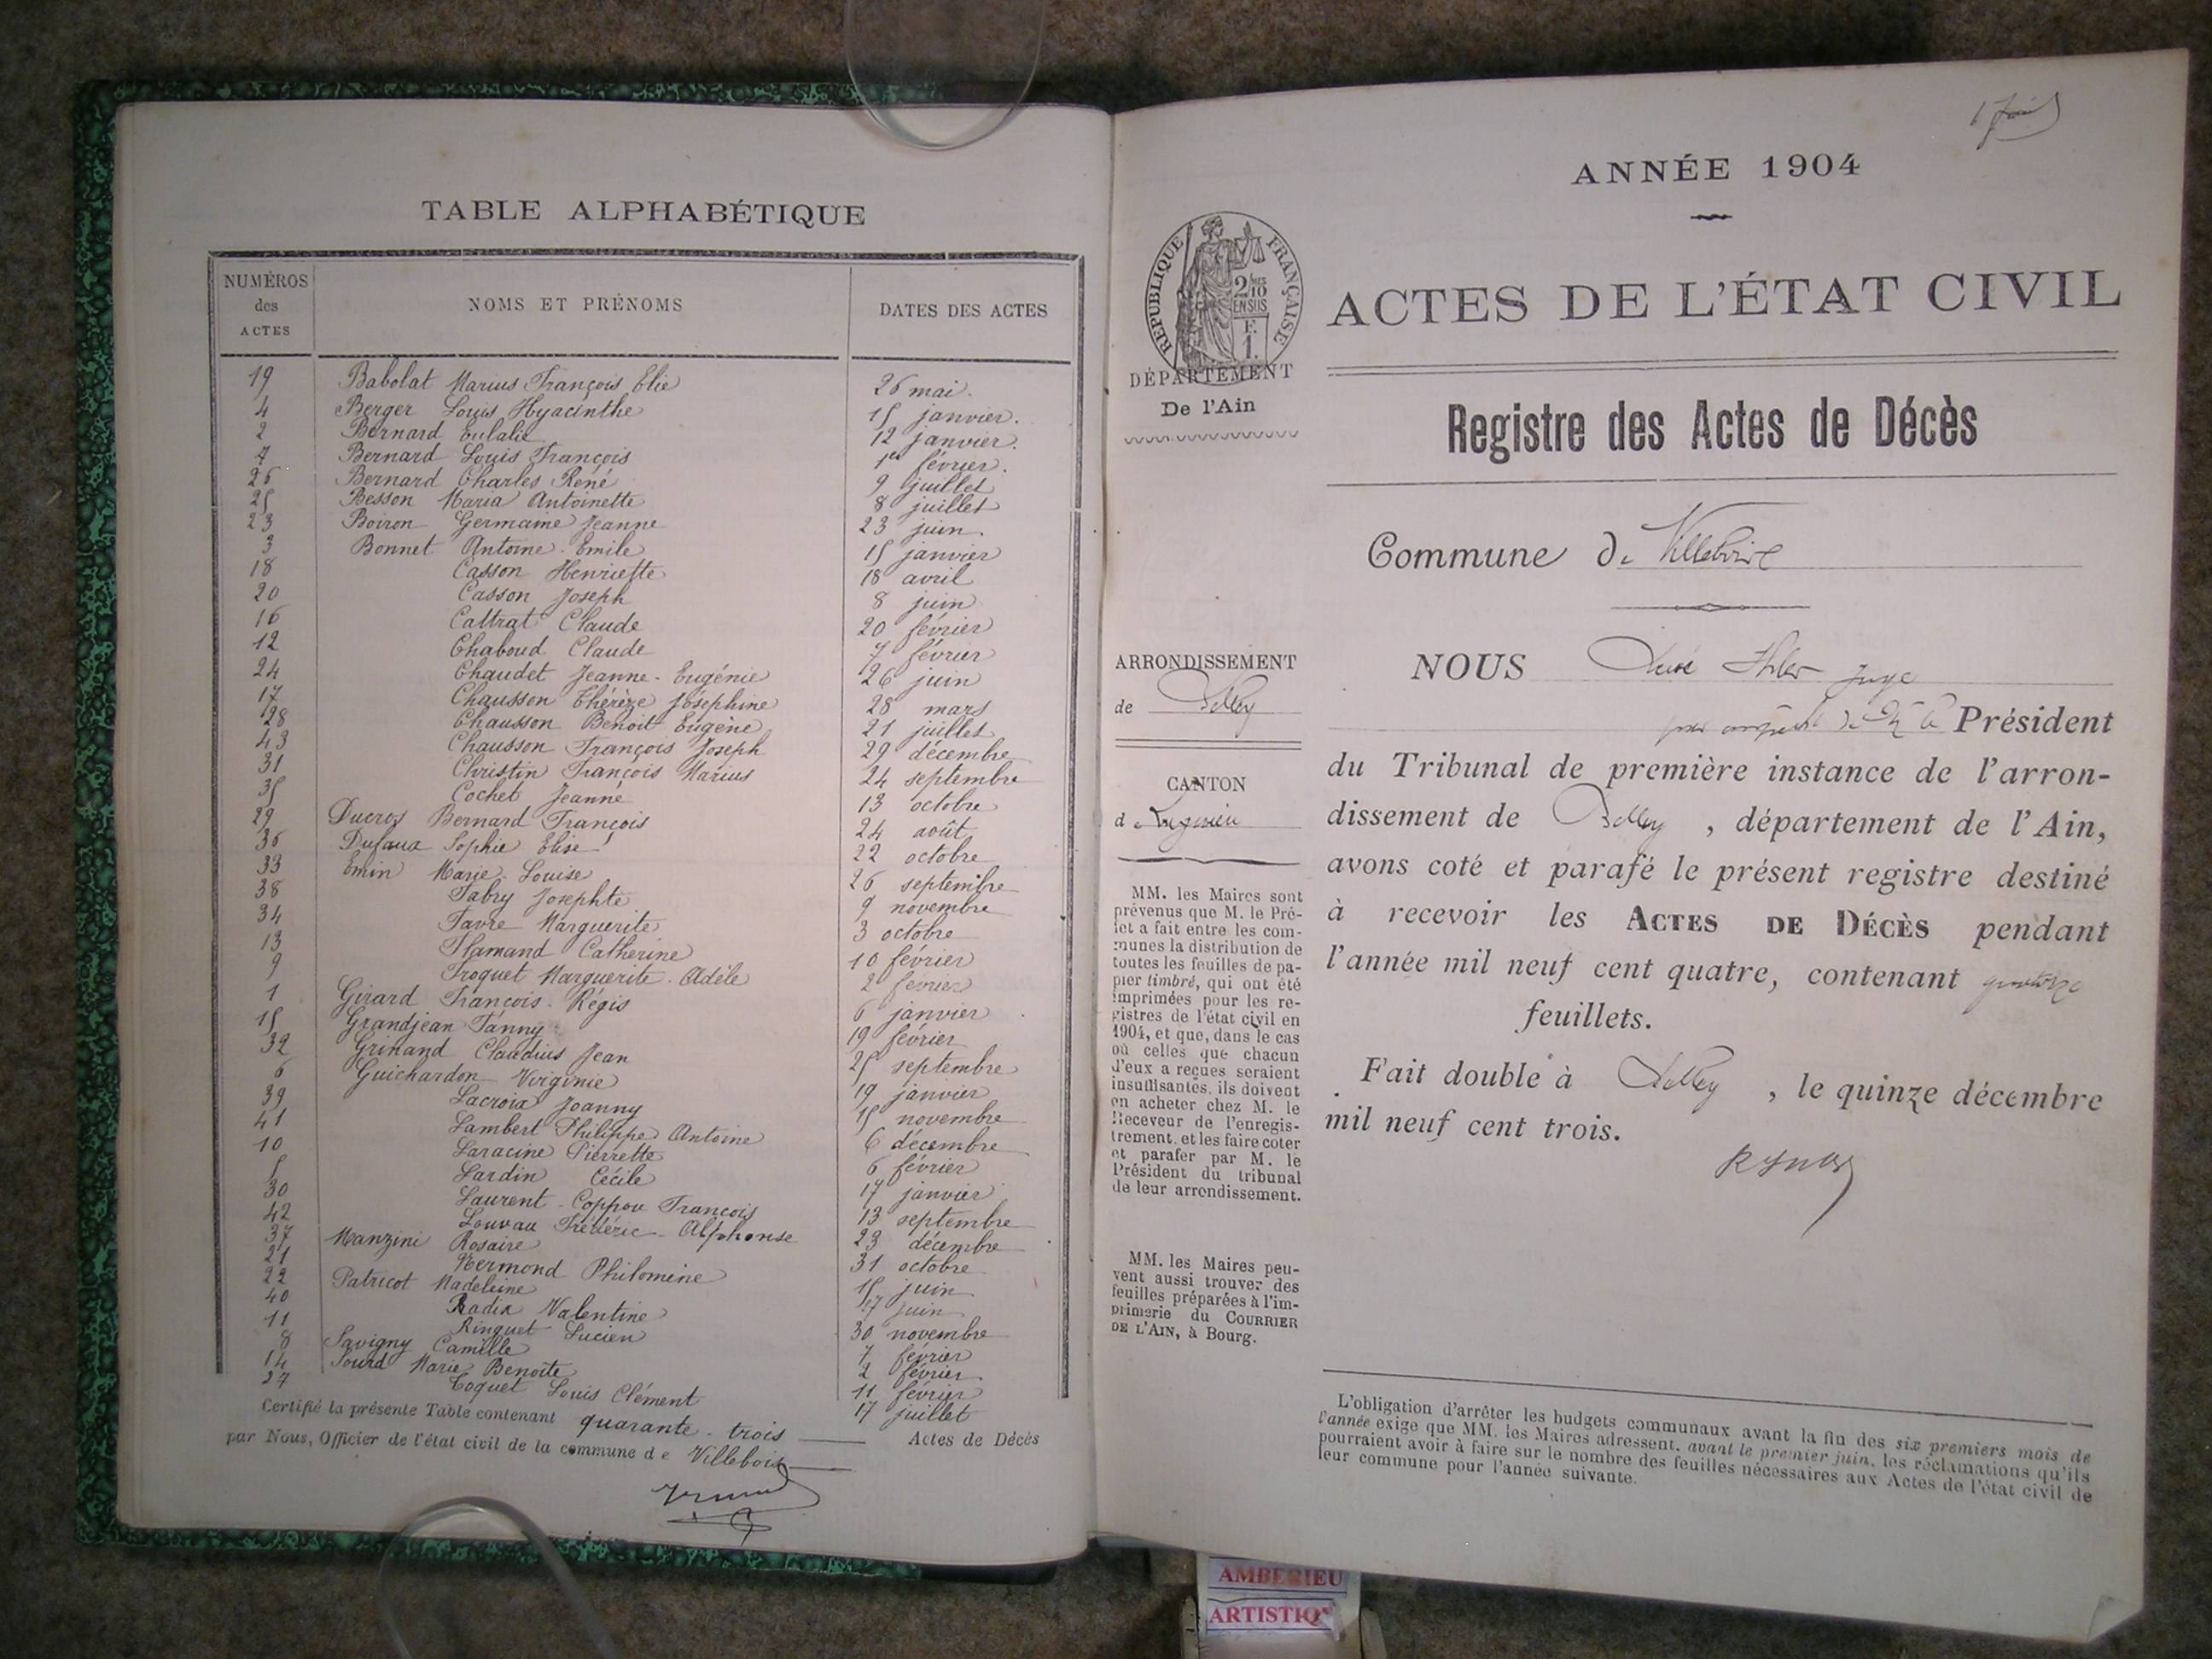 TABLE ALPHABÉTIQUE
NUMÉROS des ACTES NOMS ET PRÉNOMS DATES DES ACTES
19 Babolat Marius François Elie 26 mai.
4 Berger Louis Hyacinthe 15 janvier.
2 Bernard Eulalie 12 janvier.
7 Bernard Louis François 1er février.
26 Bernard Charles René 9 juillet
25 Besson Maria Antoinette 8 juillet
23 Boiron Germaine Jeanne 23 juin.
3 Bonnet Antoine-Emile 15 janvier
18 Casson Henriette 18 avril
20 Casson Joseph 8 juin
16 Cattrat Claude 20 février
12 Chaboud Claude 7 février
24 Chaudet Jeanne-Eugénie 26 juin
17 Chausson Thérèze Joséphine 28 mars
28 Chausson Benoit Eugène 21 juillet
43 Chausson François Joseph 29 décembre
31 Christin François Marius 24 septembre
35 Cochet Jeanne 13 octobre
29 Ducros Bernard François 24 août
36 Dufaux Sophie Elise 22 octobre
33 Emin Marie-Louise 26 septembre
38 Fabry Josephte 9 novembre
34 Favre Marguerite 3 octobre
13 Flamand Catherine 10 février
9 Froquet Marguerite-Adèle 2 février
1 Girard François-Régis 6 janvier
15 Grandjean Fanny 19 février
32 Grinand Claudius Jean 25 septembre
6 Guichardon Virginie 19 janvier
39 Lacroix Joanny 15 novembre
41 Lambert Philippe Antoine 6 décembre
10 Laracine Pierrette 6 février
5 Lardin Cécile 17 janvier
30 Laurent-Coppou François 13 septembre
42 Louvau Frédéric-Alphonse 23 décembre
37 Manzini Rosaire 31 octobre
21 Mermond Philomène 15 juin
22 Patricot Madeleine 17 juin
40 Radix Valentine 30 novembre
11 Ringuet Lucien 7 février
8 Savigny Camille 2 février
14 Sourd Marie Benoîte 11 février
27 Toquet Louis Clément 17 juillet
Certifié la présente Table contenant quarante-trois Actes de Décès
par Nous, Officier de l'état civil de la commune de Villebois
ANNÉE 1904
RÉPUBLIQUE FRANÇAISE
2/10 EN SUS
F. 1.
ACTES DE L'ÉTAT CIVIL
DÉPARTEMENT
De l'Ain
Registre des Actes de Décès
Commune de Villebois
ARRONDISSEMENT
de Belley
CANTON
d Lagnieu
MM. les Maires sont
prévenus que M. le Pré-
fet a fait entre les com-
munes la distribution de
toutes les feuilles de pa-
pier timbré, qui ont été
imprimées pour les re-
gistres de l'état civil en
1904, et que, dans le cas
où celles que chacun
d'eux a reçues seraient
insuffisantes, ils doivent
en acheter chez M. le
Receveur de l'enregis-
trement, et les faire coter
et parafer par M. le
Président du tribunal
de leur arrondissement.
MM. les Maires peu-
vent aussi trouver des
feuilles préparées à l'im-
primerie du COURRIER
DE L'AIN, à Bourg.
NOUS juge
Président
du Tribunal de première instance de l'arron-
dissement de Belley, département de l'Ain,
avons coté et parafé le présent registre destiné
à recevoir les ACTES DE DÉCÈS pendant
l'année mil neuf cent quatre, contenant quatorze
feuillets.
Fait double à Belley, le quinze décembre
mil neuf cent trois.
L'obligation d'arrêter les budgets communaux avant la fin des six premiers mois de
l'année exige que MM. les Maires adressent, avant le premier juin, les réclamations qu'ils
pourraient avoir à faire sur le nombre des feuilles nécessaires aux Actes de l'état civil de
leur commune pour l'année suivante.
AMBERIEU
ARTISTIQ